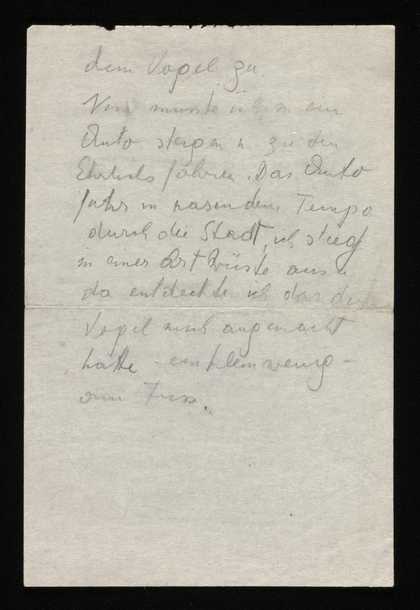 dem Vogel zu.
Nun musste ich in ein
Auto steigen u. zu den
Ehrlichs fahren. Das Auto
fuhr in rasendem Tempo
durch die Stadt, ich stieg
in einer Art Wüste aus u
da entdeckte ich dass der
Vogel mich angemacht
hatte - ein klein wenig -
am Fuss.